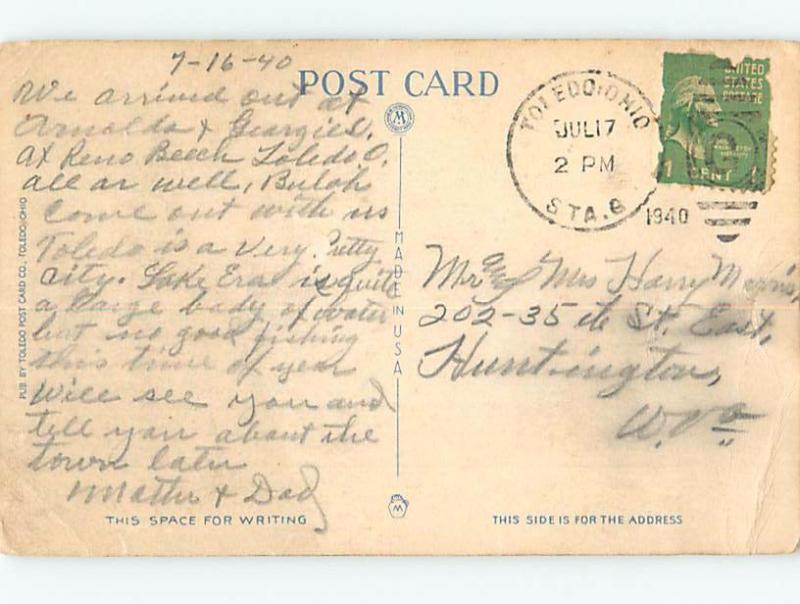 7-16-40
POST CARD
We arrived out at
Arnolds & Georgies.
at Reno Beech Toledo O.
all ar well, Bulah
Come out with us
Toledo is a very Pretty
City. Lake Era is quite
a large body of water
but no good fishing
this time of year
Will see you and
tell you about the
town later
Mother & Dad
THIS SPACE FOR WRITING
PUB. BY TOLEDO POST CARD CO., TOLEDO, OHIO
MADE IN USA
M
M
TOLEDO, OHIO
JUL 17
2 PM
STA. 8
1940
UNITED
STATES
POSTAGE
1 CENT
Mr and Mrs Harry Morris,
202-35 th St. East,
Huntington,
W. Va
THIS SIDE IS FOR THE ADDRESS